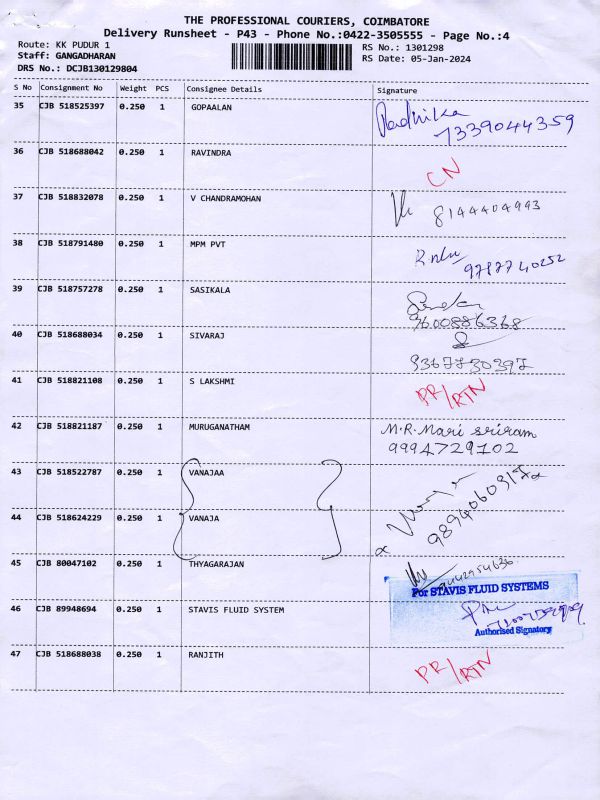 THE PROFESSIONAL COURIERS, COIMBATORE
Delivery Runsheet - P43 - Phone No.:0422-3505555 - Page No.:4
Route: KK PUDUR 1 RS No.: 1301298
Staff: GANGADHARAN RS Date: 05-Jan-2024
DRS No.: DCJB130129804
S No Consignment No Weight PCS Consignee Details Signature
35 CJB 518525397 0.250 1 GOPAALAN Radhika
7339044359
36 CJB 518688042 0.250 1 RAVINDRA CN
37 CJB 518832078 0.250 1 V CHANDRAMOHAN 8144404993
38 CJB 518791480 0.250 1 MPM PVT
9787740252
39 CJB 518757278 0.250 1 SASIKALA
9600886368
40 CJB 518688034 0.250 1 SIVARAJ
9367730397
41 CJB 518821108 0.250 1 S LAKSHMI PR/RTN
42 CJB 518821187 0.250 1 MURUGANATHAM M.R. Mari sriram
9994729102
43 CJB 518522787 0.250 1 VANAJAA
9894060317
44 CJB 518624229 0.250 1 VANAJA
45 CJB 80047102 0.250 1 THYAGARAJAN 9442954636
For STAVIS FLUID SYSTEMS
46 CJB 89948694 0.250 1 STAVIS FLUID SYSTEM
Authorised Signatory
47 CJB 518688038 0.250 1 RANJITH PR/RTN